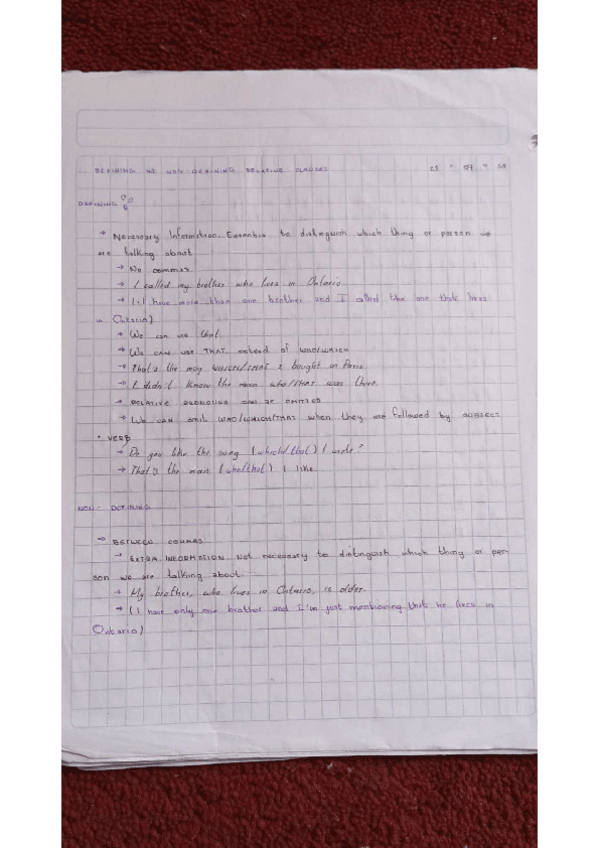 DEFINING VS NON-DEFINING RELATIVE CLAUSES
DEFINING
→ Necessary Information. Essential to distinguish which thing or person we
are talking about
→ No commas
→ I called my brother who lives in Ontario
→ (I have more than one brother and I called the one that lives
in Ontario)
→ We can use that
→ We can use THAT instead of WHO/WHICH
→ That's the mug WHICH/THAT I bought in Paris
→ I didn't know the man who/THAT was there.
→ RELATIVE PRONOUNS CAN BE OMITTED
→ We CAN omit WHO/WHICH/THAT when they are followed by SUBJECT
+ VERB
→ Do you like the song (which/that) I wrote?
→ That's the man (who/that) I like
NON- DEFINING
→ BETWEEN COMMAS
→ EXTRA INFORMATION. Not necessary to distinguish which thing or per-
son we are talking about.
→ My brother, who lives in Ontario, is older.
→ (I have only one brother and I'm just mentioning that he lives in
Ontario)